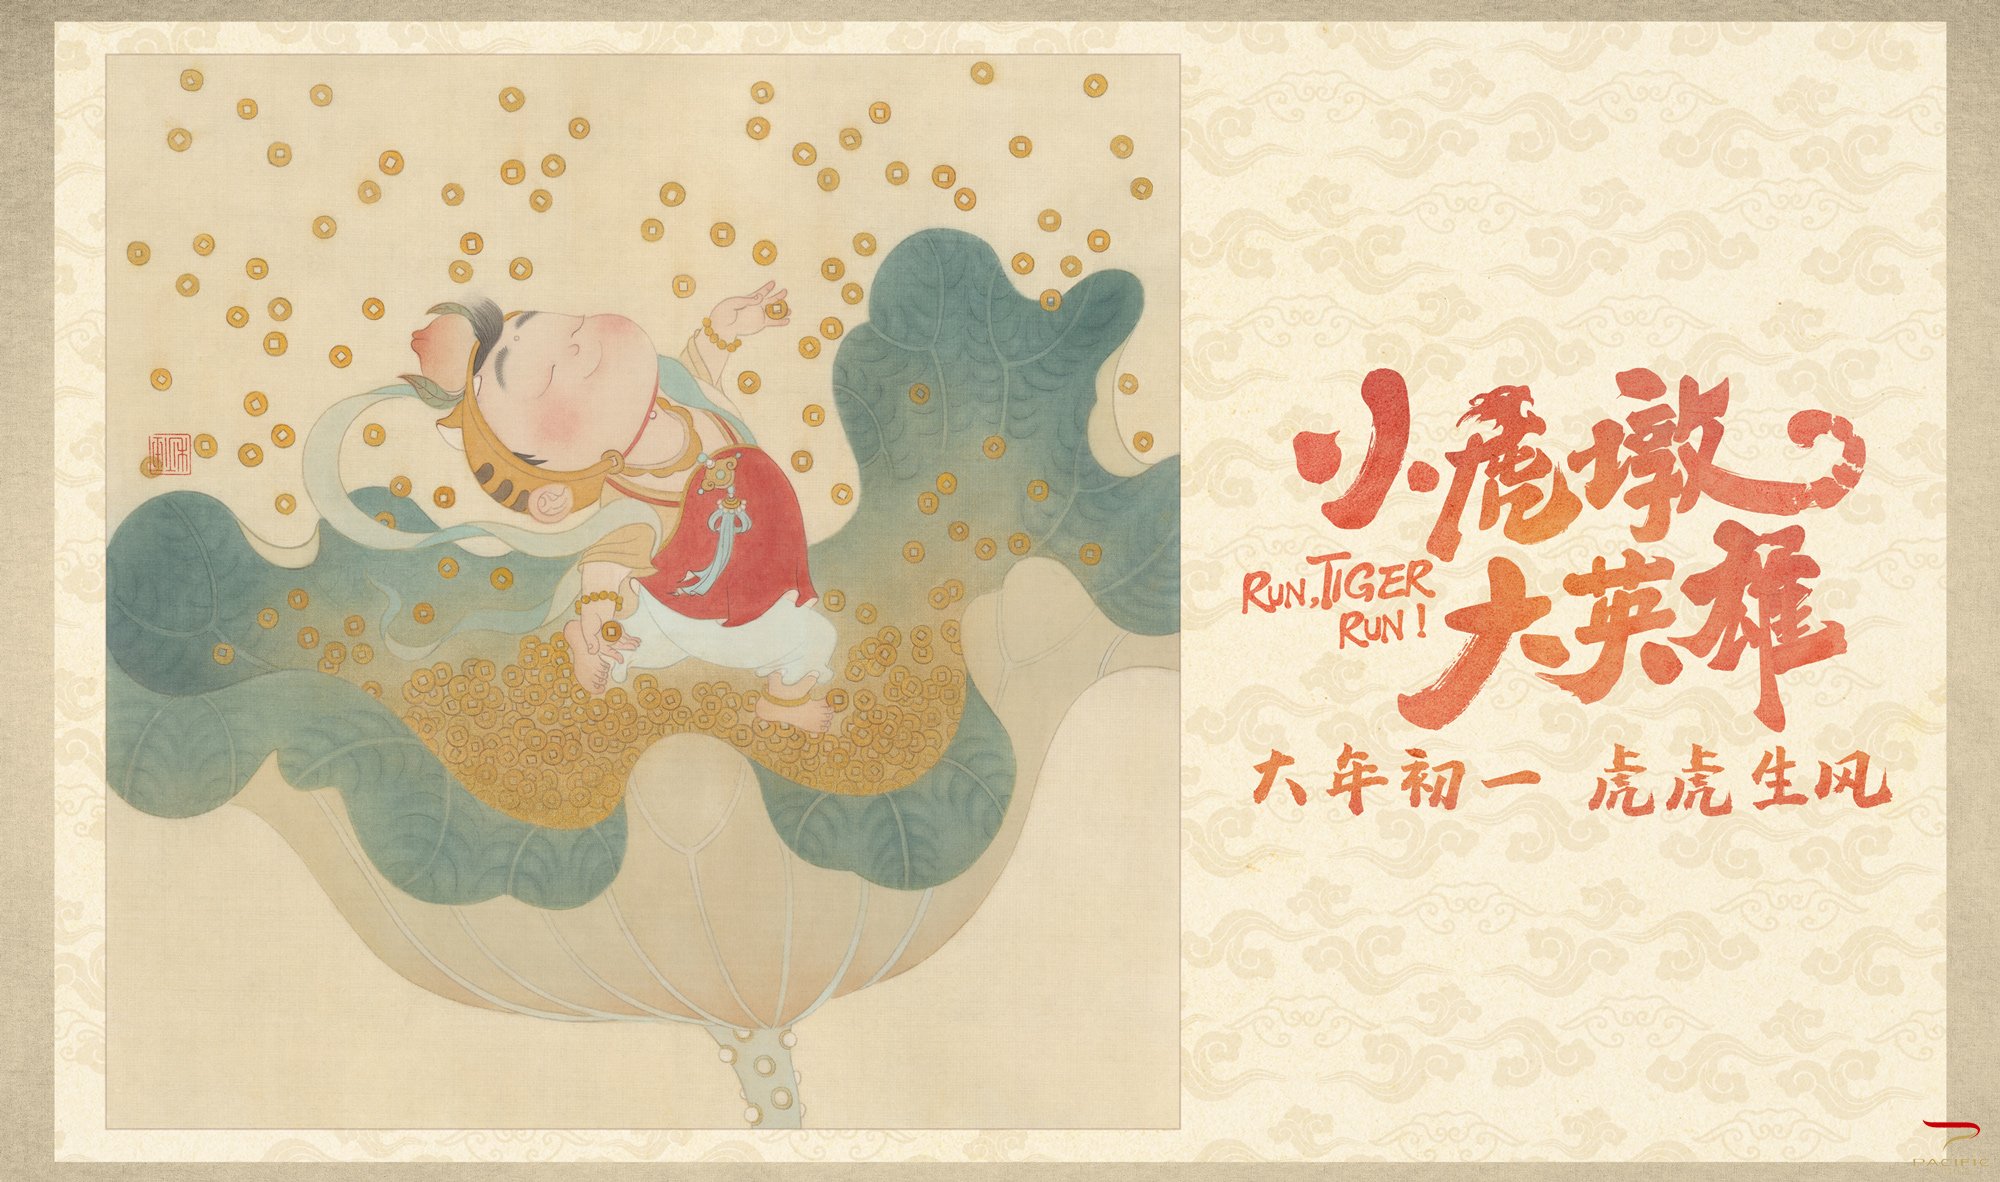 小虎墩
大英雄
RUN, TIGER
RUN!
大年初一 虎虎生风
PACIFIC